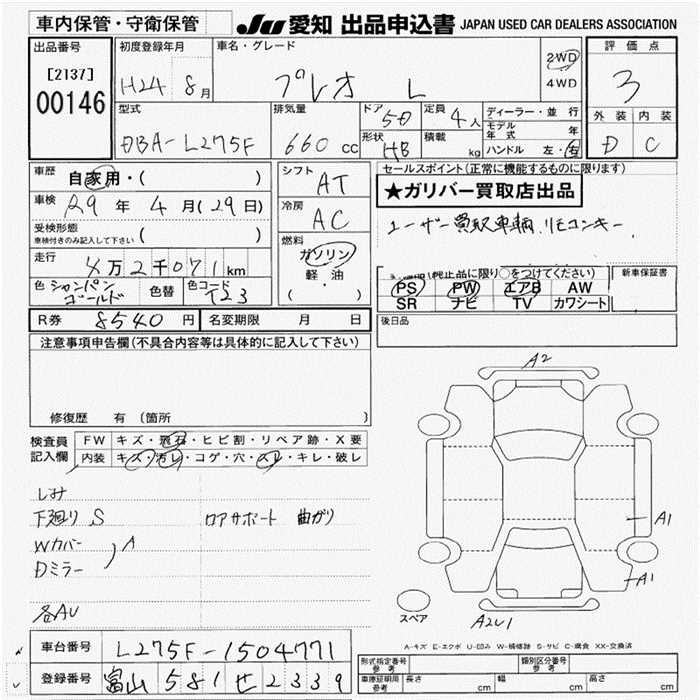 車内保管・守衛保管
JU 愛知 出品申込書 JAPAN USED CAR DEALERS ASSOCIATION
出品番号
[2137]
00146
初度登録年月
H24 8月
車名・グレード
プレオ L
2WD
4WD
評価点
3
外装 内装
D C
型式
DBA-L275F
排気量
660 cc
ドア
5D
形状
HB
定員
4人
積載
kg
ディーラー・並行
モデル年式 年
ハンドル 左・右
車歴
自家用・( )
車検
29年 4月(29日)
受検形態
車検付きのみ記入して下さい ( )
走行
4万2千071km
色 シャンパンゴールド 色替 色コード T23
シフト
AT
冷房
AC
燃料
ガソリン
軽・油
( ・ )
セールスポイント(正常に機能するものに限ります)
★ガリバー買取店出品
ユーザー買取車輌、リモコンキー
純正品に限り○をつけてください)
PS PW エアB AW
SR ナビ TV カワシート
新車保証書
後日品
R券 8540円 名変期限 月 日
注意事項申告欄(不具合内容等は具体的に記入して下さい)
修復歴 有 〔箇所 〕
検査員記入欄
FW キズ・飛石・ヒビ割・リペア跡・X要
内装 キズ・汚レ・コゲ・穴・スレ・キレ・破レ
しみ
下廻り S ロアサポート 曲がり
Wカバー
Dミラー
A
各AU
A2
A1
A1
A2U1
スペア
A-キズ E-エクボ U-凹み W-補修跡 S-サビ C-腐食 XX-交換済
車台番号 L275F-1504771
登録番号 富山 581 せ 2339
形式指定番号 参考
類別区分番号 参考
車庫証明用 参考 長さ cm 幅 cm 高さ cm